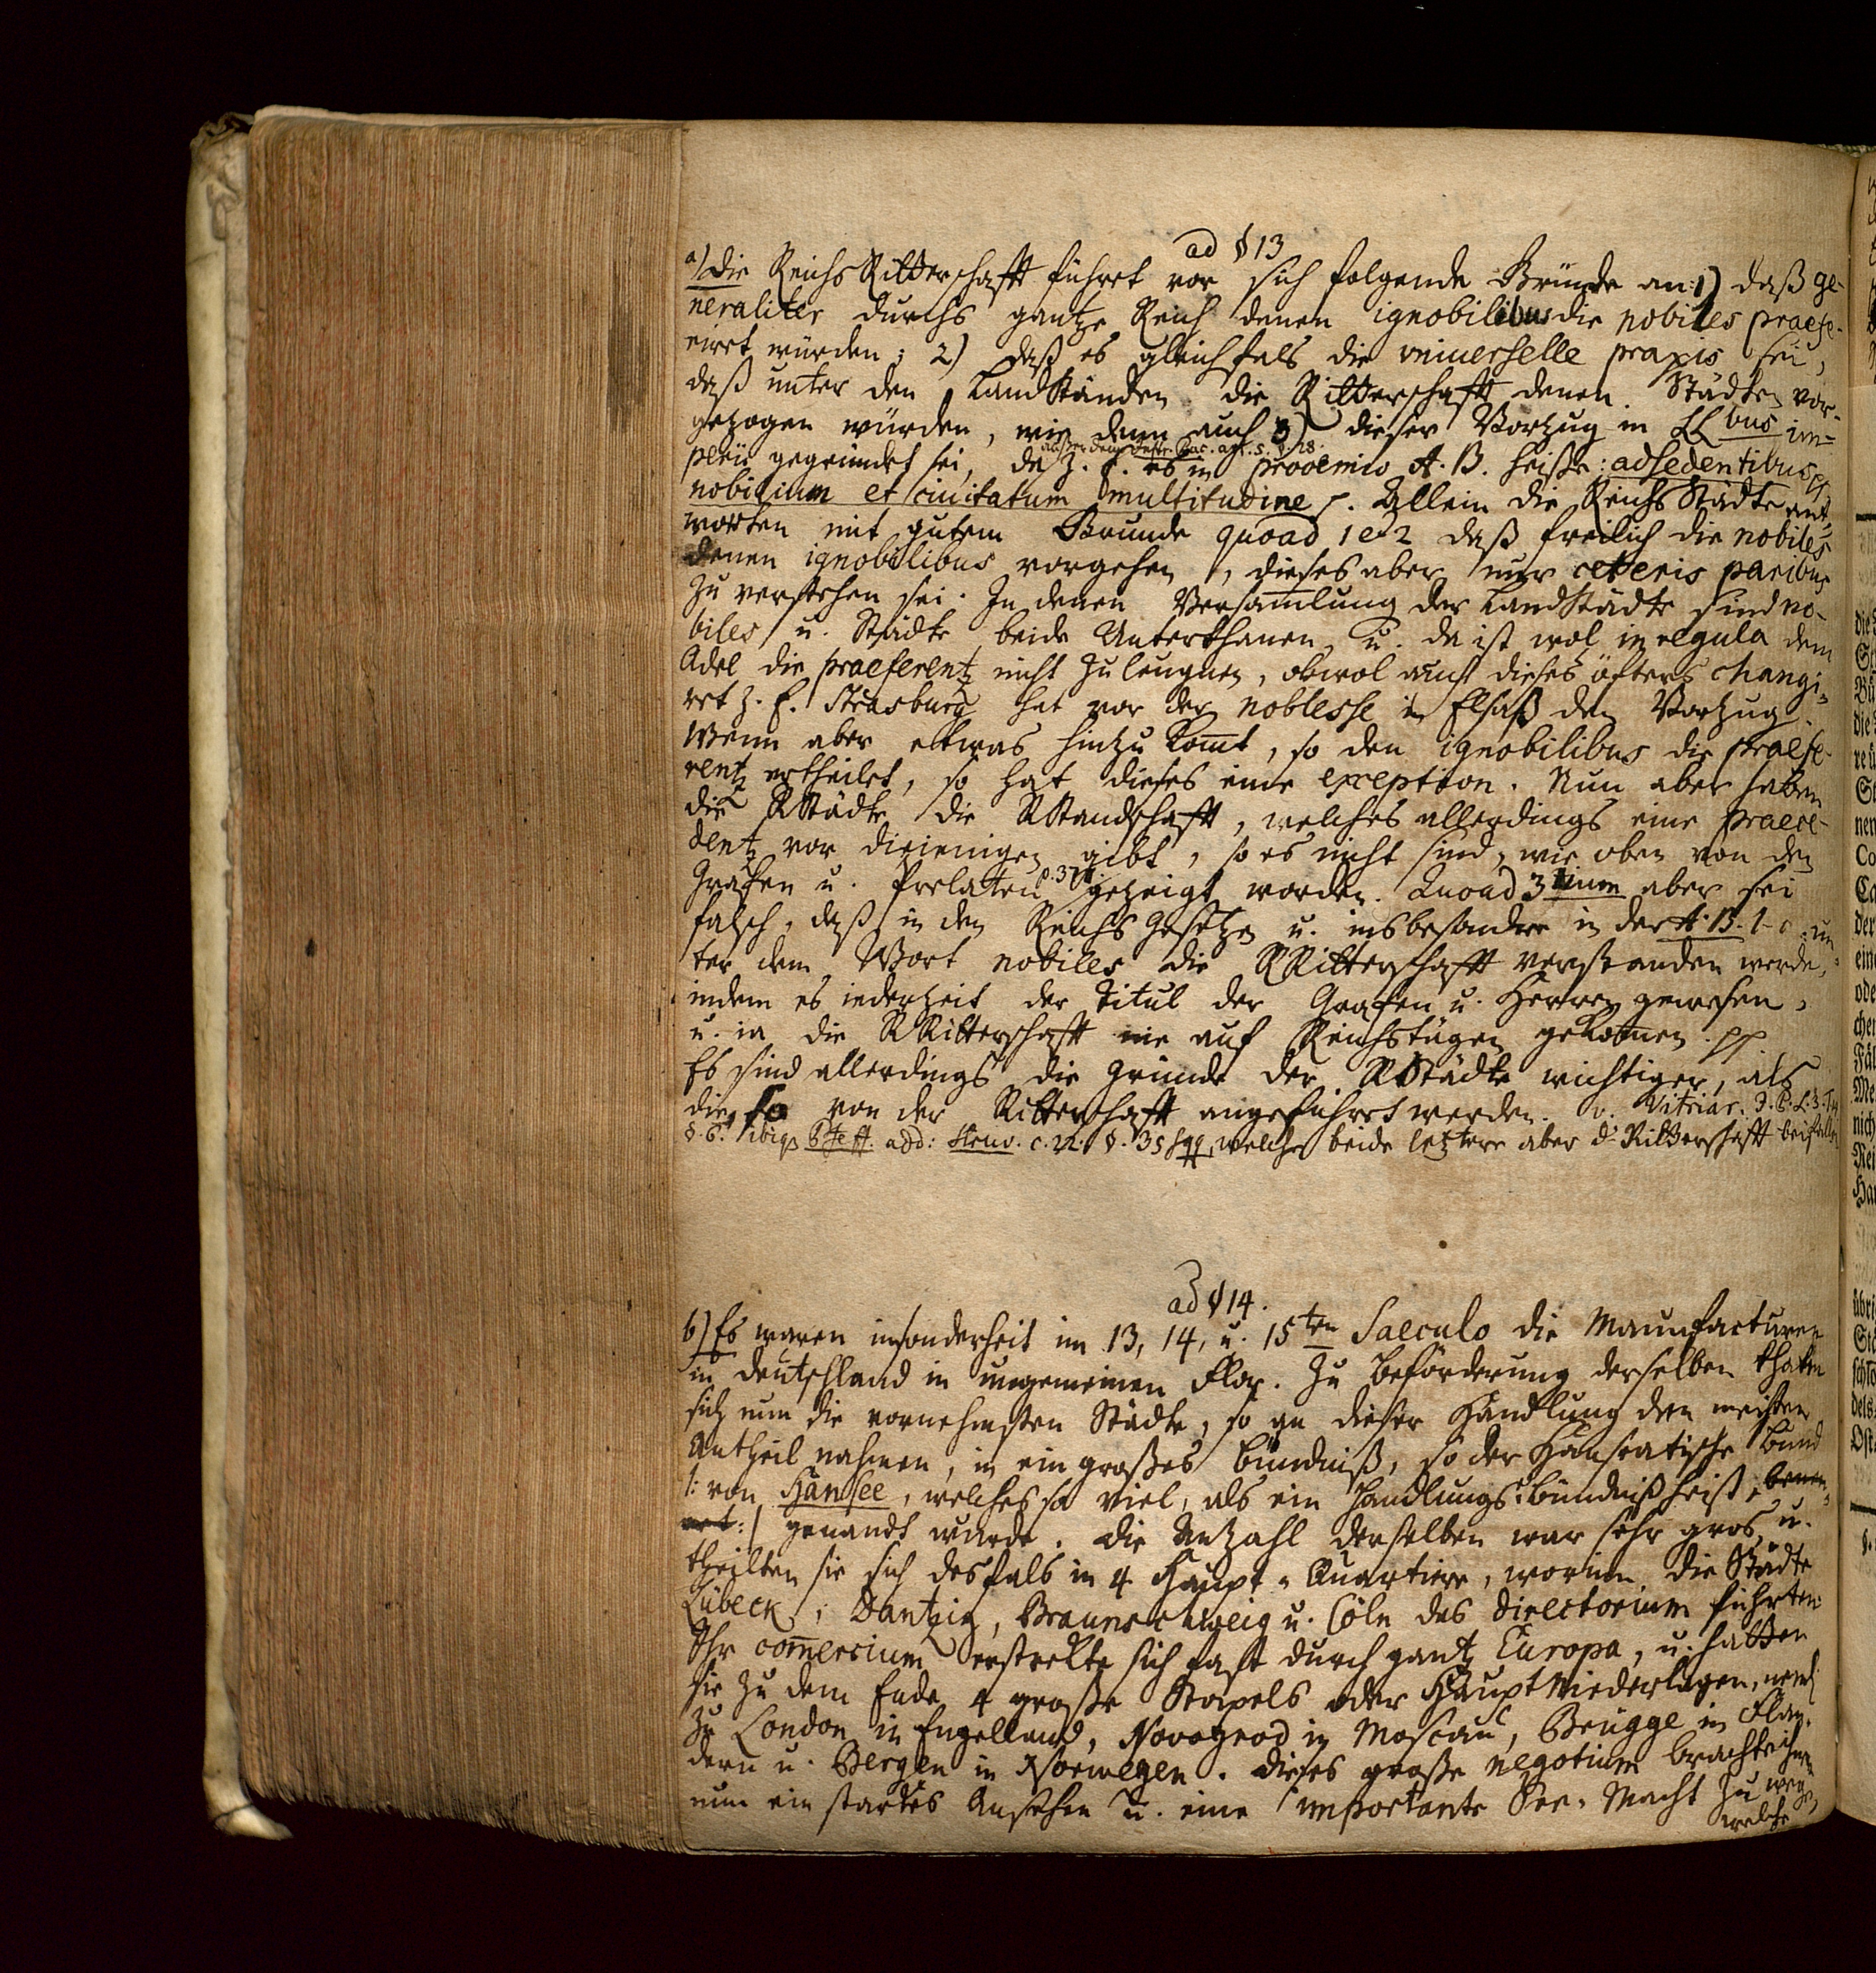 ad § 13
a) Die Reichs Ritterschafft führet vor sich folgende Gründe an: 1) daß ge-
neraliter durchs gantze Reich denen ignobilibus die nobiles praefe-
rirt würden; 2) daß es gleichfals die vniuerselle praxis sei,
daß unter den LandStänden die Ritterschafft denen Städten vor-
gezogen würden, wie denn auch 3) dieser Vorzug in LLbus im-
außer dem Instr. Pac. art. 5. § 28.
perii gegründet sei, da z. E. es in prooemio A. B. heiße: adsedentibus pp
nobilium et ciuitatum multitudine p. Allein die Reichs Städte ant-
worten mit gutem Grunde quoad 1 e 2 daß freilich die nobiles
denen ignobilibus vorgehen, dieses aber nur ceteris paribus
zu verstehen sei. In denen Versamlung der LandStädte sind no-
biles u. Städte beide Unterthanen, u. da ist wol in regula dem
Adel die praeferentz nicht zu leugnen, obwol auch dieses öfters changi-
ret z. E. Strasburg hat vor der noblesse in Elsaß den Vorzug.
Wenn aber etwas hinzu komt, so den ignobilibus die praefe-
rentz ertheilet, so hat dieses eine exception. Nun aber haben
die RStädte die RStandschafft, welches allerdings eine praece-
dentz vor dieienigen gibt, so es nicht sind, wie oben von den
Grafen u. Prelaten p. 374. gezeigt worden. Quoad 3tium aber sei
falsch, daß in den Reichs Gesetzen u. insbesondere in der A. B. l. c. un-
ter dem Wort nobiles die RRitterschafft verstanden werde,
indem es iederzeit der Titul der Grafen u. Herren gewesen,
u. ia die RRitterschafft nie auf Reichstägen gekomen. pp
Es sind allerdings die Gründe der RStädte wichtiger, als
die so von der Ritterschafft angeführet werden. v. Vitriar. I. P. L. 3. T.
§. 6. ibiq. Pfeff. add: Struv. c. 22. §. 35 sqq, welche beide letztere aber d. Ritterschafft beifallen
ad § 14.
b) Es waren insonderheit im 13, 14, u. 15ten Saeculo die Manufacturen
in Deutschland in ungemeinen Flor. Zu Beförderung derselben thaten
sich nun die vornehmsten Städte, so an dieser Handlung den meisten
Antheil nahmen, in ein großes Bündniß, so der Hanseatische Bund
/: von Hansee, welches so viel, als ein Handlungs-Bündniß heist,
:/ genandt wurde. Die Anzahl derselben war sehr gros, u.
theilten sie sich desfals in 4 Haupt-Quartiere, worinn die Städte
Lübeck, Dantzig, Braunschweig u. Cöln das Directorium führten.
Ihr comercium erstrekte sich fast durch gantz Europa, u. hatten
sie zu dem Ende 4 große Stapels oder HauptNiederlagen, neml.
zu London in Engelland, Novogrod in Moscau, Brügge in Flan-
dern u. Bergen in Norwegen. Dieses große negotium brachte ihnen
nun ein starkes Ansehen u. eine importante See-Macht zu wege,
welche